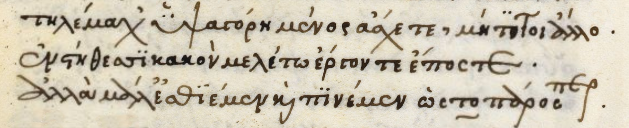 τηλέμαχ' ϋψαγόρη μένος ἄσχετε, μή τϊ τοι ἄλλο.
ἐν στήθεσϊ κακὸν μελέτω ἔργον τε ἔπος τε.
ἀλλὰ μάλ' ἐσθϊέμεν καὶ πϊνέμεν ὡς το πάρος περ.